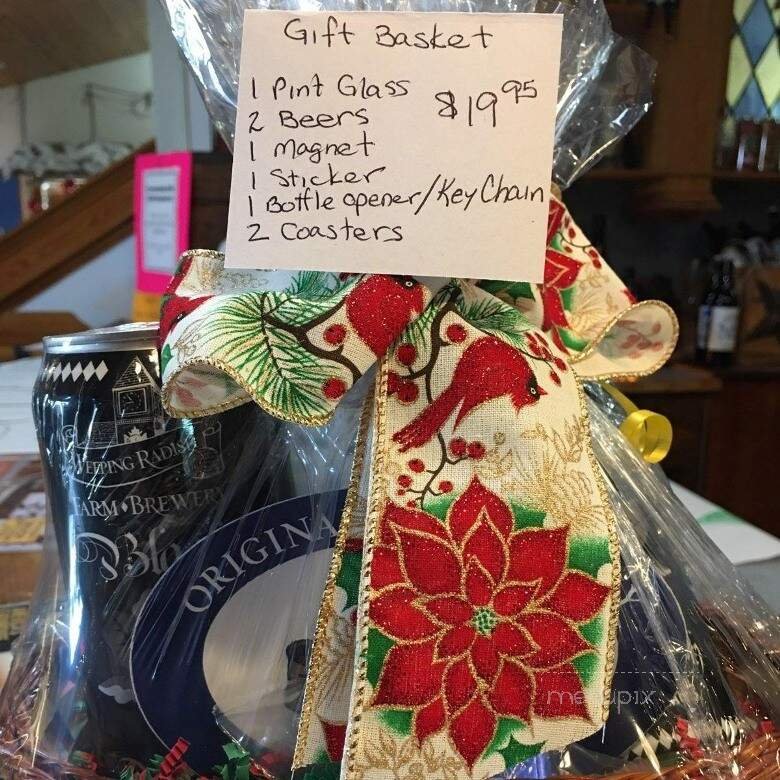 Gift Basket
1 Pint Glass
$19.95
2 Beers
1 Magnet
1 Sticker
1 Bottle opener/Key Chain
2 Coasters
WEEPING RADIS
FARM BREWERY
ORIGINA
menupix